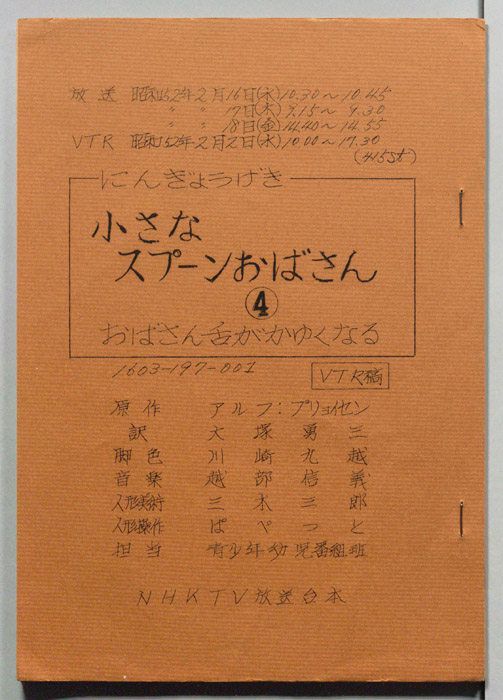 放送 昭和52年2月16日(水)10.30〜10.45
〃 〃 17日(木)9.15〜9.30
〃 〃 18日(金)14.40〜14.55
VTR 昭和52年2月2日(水)10.00〜17.30
(415st)
にんぎょうげき
小さな
スプーンおばさん
④
おばさん舌がかゆくなる
1603-197-001
VTR稿
原作 アルフ:プリョイセン
訳 大塚勇三
脚色 川崎九越
音楽 越部信義
人形美術 三木三郎
人形操作 ぱぺっと
担当 青少年幼児番組班
NHKTV放送台本